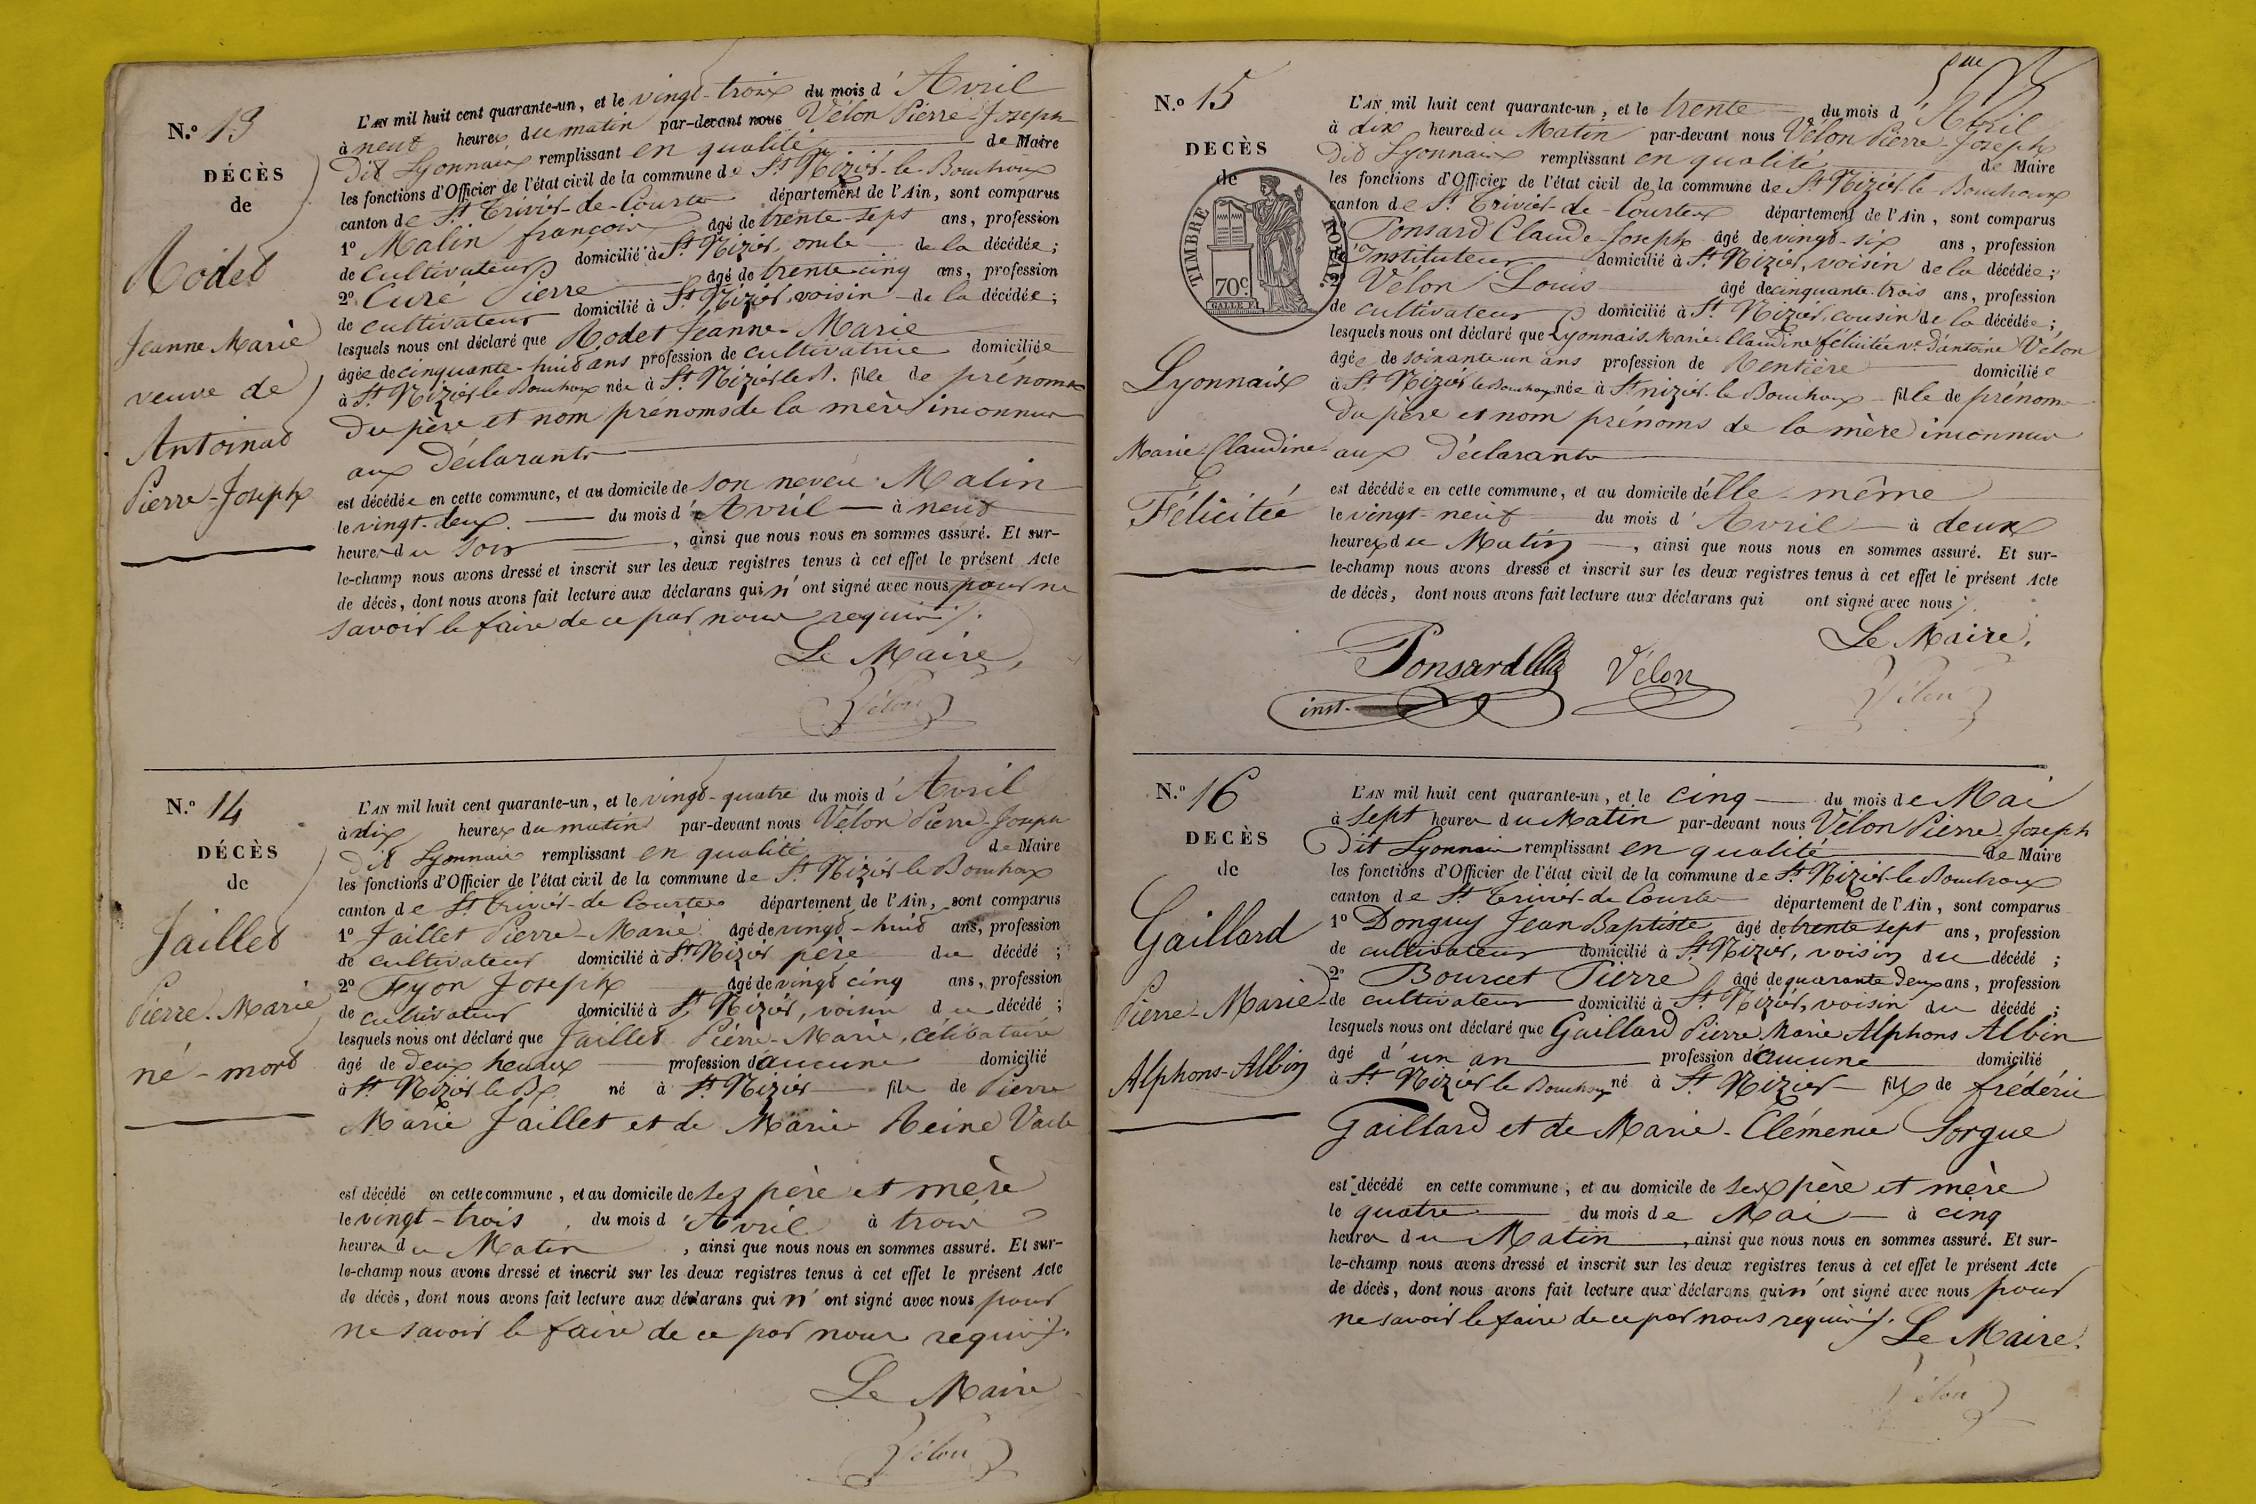 N.º 13
DÉCÈS
de
Rodet
Jeanne Marie
veuve de
Antoinat
Pierre-Joseph
L'AN mil huit cent quarante-un, et le vingt-trois du mois d'Avril
à neuf heures du matin par-devant nous Vélon Pierre-Joseph
Dit Lyonnais remplissant en qualité de Maire
les fonctions d'Officier de l'état civil de la commune de St Nizier-le-Bouchoux
canton de St Trivier-de-Courtes département de l'Ain, sont comparus
1º Malin françois âgé de trente-sept ans, profession
de cultivateur domicilié à St Nizier, oncle de la décédée;
2º Curé Pierre âgé de trente cinq ans, profession
de cultivateur domicilié à St Nizier, voisin de la décédée;
lesquels nous ont déclaré que Rodet Jeanne-Marie
âgée de cinquante-huit ans profession de cultivatrice domiciliée
à St Nizier le Bouchoux née à St Nizier le B. fille de prénoms
du père et nom prénoms de la mère inconnus
aux Déclarants
est décédée en cette commune, et au domicile de son neveu Malin
le vingt-deux du mois d'Avril à neuf
heures du soir , ainsi que nous nous en sommes assuré. Et sur-
le-champ nous avons dressé et inscrit sur les deux registres tenus à cet effet le présent Acte
de décès, dont nous avons fait lecture aux déclarans qui n'ont signé avec nous pour ne
savoir le faire de ce par nous requis ./.
Le Maire,
Vélon
N.º 14
DÉCÈS
de
Jaillet
Pierre-Marie
né-mort
L'AN mil huit cent quarante-un, et le vingt-quatre du mois d'Avril
à dix heures du matin par-devant nous Vélon Pierre-Joseph
Dit Lyonnais remplissant en qualité de Maire
les fonctions d'Officier de l'état civil de la commune de St Nizier-le-Bouchoux
canton de St Trivier-de Courtes département de l'Ain, sont comparus
1º Jaillet Pierre-Marie âgé de vingt-huit ans, profession
de cultivateur domicilié à St Nizier père du décédé;
2º Fyon Joseph âgé de vingt cinq ans, profession
de cultivateur domicilié à St Nizier, voisin du décédé;
lesquels nous ont déclaré que Jaillet Pierre-Marie, célibataire
âgé de deux heures profession d'aucune domicilié
à St Nizier le Bx né à St Nizier fils de Pierre
Marie Jaillet et de Marie Reine
est décédé en cette commune, et au domicile de ses père et mère
le vingt-trois du mois d'Avril à trois
heures du Matin , ainsi que nous nous en sommes assuré. Et sur-
le-champ nous avons dressé et inscrit sur les deux registres tenus à cet effet le présent Acte
de décès, dont nous avons fait lecture aux déclarans qui n'ont signé avec nous pour
ne savoir le faire de ce par nous requis ./.
Le Maire
Vélon
5me
N.º 15
DECÈS
de
TIMBRE ROYAL
70c
GALLE F.
Lyonnais
Marie-Claudine
Félicitée
L'AN mil huit cent quarante-un, et le trente du mois d'Avril
à dix heures du Matin par-devant nous Vélon Pierre-Joseph
Dit Lyonnais remplissant en qualité de Maire
les fonctions d'Officier de l'état civil de la commune de St Nizier-le-Bouchoux
canton de St Trivier-de-Courtes département de l'Ain, sont comparus
1º Ponsard Claude-Joseph âgé de vingt-six ans, profession
d'Instituteur domicilié à St Nizier, voisin de la décédée;
2º Vélon Louis âgé de cinquante-trois ans, profession
de cultivateur domicilié à St Nizier, cousin de la décédée;
lesquels nous ont déclaré que Lyonnais Marie-Claudine félicitée ve d'antoine Vélon
âgée de soixante un ans profession de Rentière domiciliée
à St Nizier le Bouchoux née à St nizier-le Bouchoux fille de prénom
du père et nom prénoms de la mère inconnus
aux déclarants
est décédée en cette commune, et au domicile d'elle-même
le vingt-neuf du mois d'Avril à deux
heures du Matin , ainsi que nous nous en sommes assuré. Et sur-
le-champ nous avons dressé et inscrit sur les deux registres tenus à cet effet le présent Acte
de décès, dont nous avons fait lecture aux déclarans qui ont signé avec nous ./.
Le Maire,
Ponsard Vélon
inst.
Vélon
N.º 16
DECÈS
de
Gaillard
Pierre-Marie
Alphons-Albin
L'AN mil huit cent quarante-un, et le cinq du mois de Mai
à sept heures du Matin par-devant nous Vélon Pierre-Joseph
Dit Lyonnais remplissant en qualité de Maire
les fonctions d'Officier de l'état civil de la commune de St Nizier-le Bouchoux
canton de St Trivier-de Courtes département de l'Ain, sont comparus
1º Donguy Jean Baptiste âgé de trente sept ans, profession
de cultivateur domicilié à St Nizier, voisin du décédé;
2º Bourcet Pierre âgé de quarante deux ans, profession
de cultivateur domicilié à St Nizier, voisin du décédé;
lesquels nous ont déclaré que Gaillard Pierre Marie Alphons Albin
âgé d'un an profession d'aucune domicilié
à St Nizier le Bouchoux né à St Nizier fils de frédéric
Gaillard et de Marie-Clémence Sorgue
est décédé en cette commune, et au domicile de ses père et mère
le quatre du mois de Mai à cinq
heures du Matin , ainsi que nous nous en sommes assuré. Et sur-
le-champ nous avons dressé et inscrit sur les deux registres tenus à cet effet le présent Acte
de décès, dont nous avons fait lecture aux déclarans qui n'ont signé avec nous pour
ne savoir le faire de ce par nous requis ./.
Le Maire.
Vélon